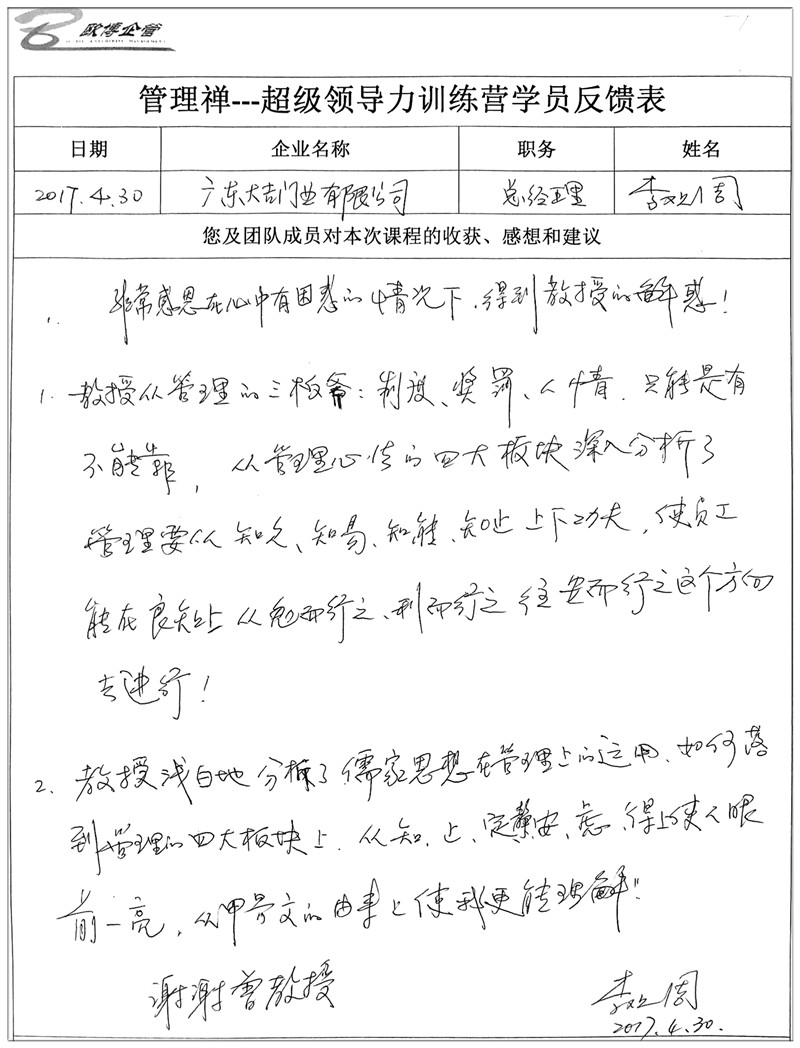 欧博企管
管理禅---超级领导力训练营学员反馈表
日期 企业名称 职务 姓名
2017.4.30 广东大吉门业有限公司 总经理 李 周
您及团队成员对本次课程的收获、感想和建议
非常感恩在心中有困惑的情况下,得到教授的解惑!
1. 教授从管理的三板斧:制度、奖罚、人情.只能是有
不能靠,从管理心法的四大板块深入分析了
管理要从知么、知易、知能、知止上下功夫,使员工
能在良知上从勉而行之、利而行之往安而行之这个方向
去进行!
2. 教授浅白地分析了儒家思想在管理上的运用、如何落
到管理的四大板块上.从知、止、定、静、安、虑、得上使人眼
前一亮,从甲骨文的由来上使我更能理解!
谢谢曾教授
李 周
2017.4.30.